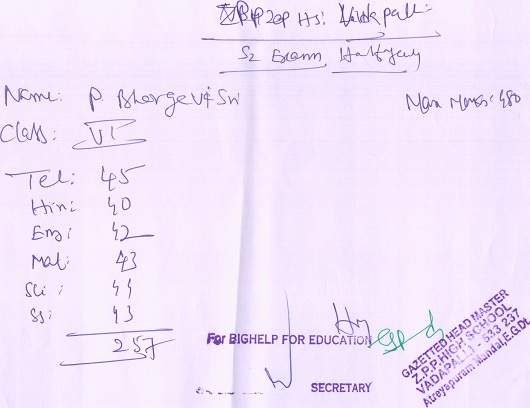 ZPP HS: Vadapalli
S2 Exam Halfyearly
Name: P. Bhargavi Sri
Max Marks: 480
Class: VI
Tel: 45
Hin: 40
Eng: 42
Mat: 43
Sci: 44
SS: 43
257
For BIGHELP FOR EDUCATION
SECRETARY
GAZETTED HEAD MASTER
Z.P.P.HIGH SCHOOL
VADAPALLI - 533 237
Atreyapuram Mandal,E.G.Dt